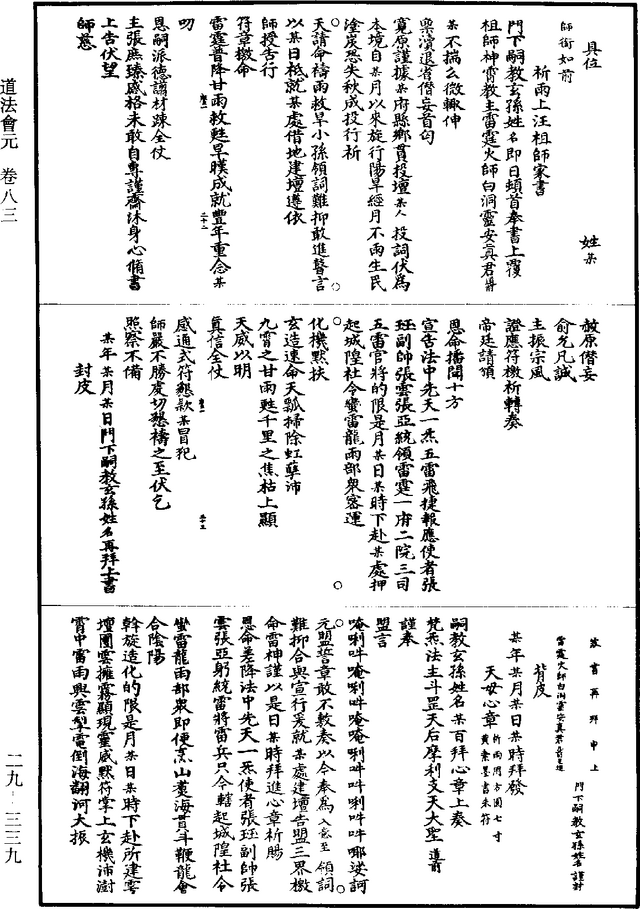 道法會元　卷八三
具位　姓某
師銜如前
祈雨上汪祖師家書
門下嗣教玄孫姓名即日頓首奉書上覆
祖師神霄教主雷霆火師白洞靈安真君
某不揣么微輙伸
槼瀆退省僭妄首白
寬原謹據某府縣鄉貫投壇某人投詞伏為
本境自某月以來旋行陽旱經月不雨生民
塗炭恐失秋成投行祈
天請命禱雨救旱小孫領詞難抑敢進瞽言
以某日祗就某處借地建壇遵依
師授告行
符章檄命
雷霆普降甘雨救甦旱暵成就豐年重念某
叨
恩嗣派德譾材踈全仗
主張庶臻感格未敢自專謹齋沐身心脩書
上告伏望
師慈
赦原僭妄
俞允凡誠
主振宗風
證應符檄祈轉奏
帝廷請頒
恩命播聞十方
宣告法中先天一炁五雷飛捷報應使者張
玨副師張雲張亞統領雷霆一府二院三司
五雷官將的限是月某日某時下赴某處押
起城隍社令蠻雷龍雨部衆密運
化機默扶
玄造速命天瓢掃除虹孽沛
九霄之甘雨甦千里之焦枯上顯
天威以明
真信全仗
感通式符懇欵某冒犯
師嚴不勝虔切懇禱之至伏乞
照察不備
某年某月某日門下嗣教玄孫姓名再拜上書
封皮
家書再拜申上
雷霆火師白洞靈安真君
門下嗣教玄孫姓名謹封
背皮
某年某月某日某時拜發
天母心章 祈雨用方圓七寸黃素墨書朱符
嗣教玄孫姓名某百拜心章上奏
梵炁法主斗罡天后摩利支天大聖
謹奉
盟言
唵唎吽唵唎吽唵唵唎吽吽唎吽吽哪娑訶
元盟誓章敢不敷奏以今奉為入意至領詞
難抑合與宣行爰就某處建壇告盟三界檄
命雷神謹以是日某時拜進心章祈賜
恩命差降法中先天一炁使者張玨副帥張
雲張亞躬統雷將雷兵只今轄起城隍社令
蠻雷龍雨部衆即便烹山煑海貫斗鞭龍會
合陰陽
斡旋造化的限是月某日某時下赴所建雩
壇圍雲擁霧顯現靈感默符掌上玄機沛澍
霄中雷雨興雲掣電倒海翻河大振
二九—三三九